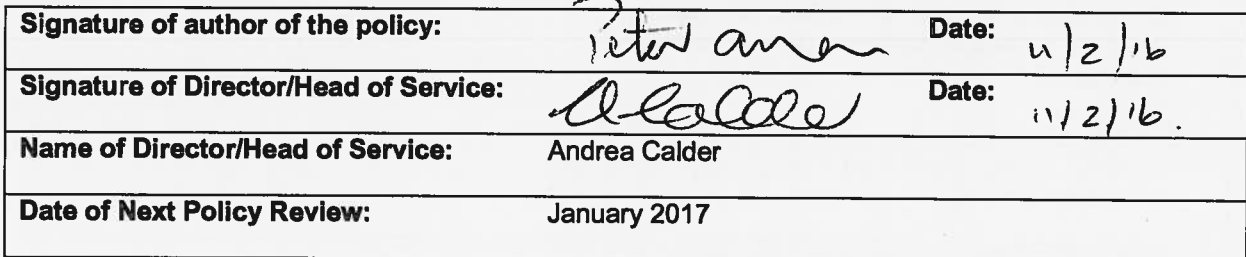 Signature of author of the policy: Peter Date: 11/2/16
Signature of Director/Head of Service: A Calder Date: 11/2/16.
Name of Director/Head of Service: Andrea Calder
Date of Next Policy Review: January 2017